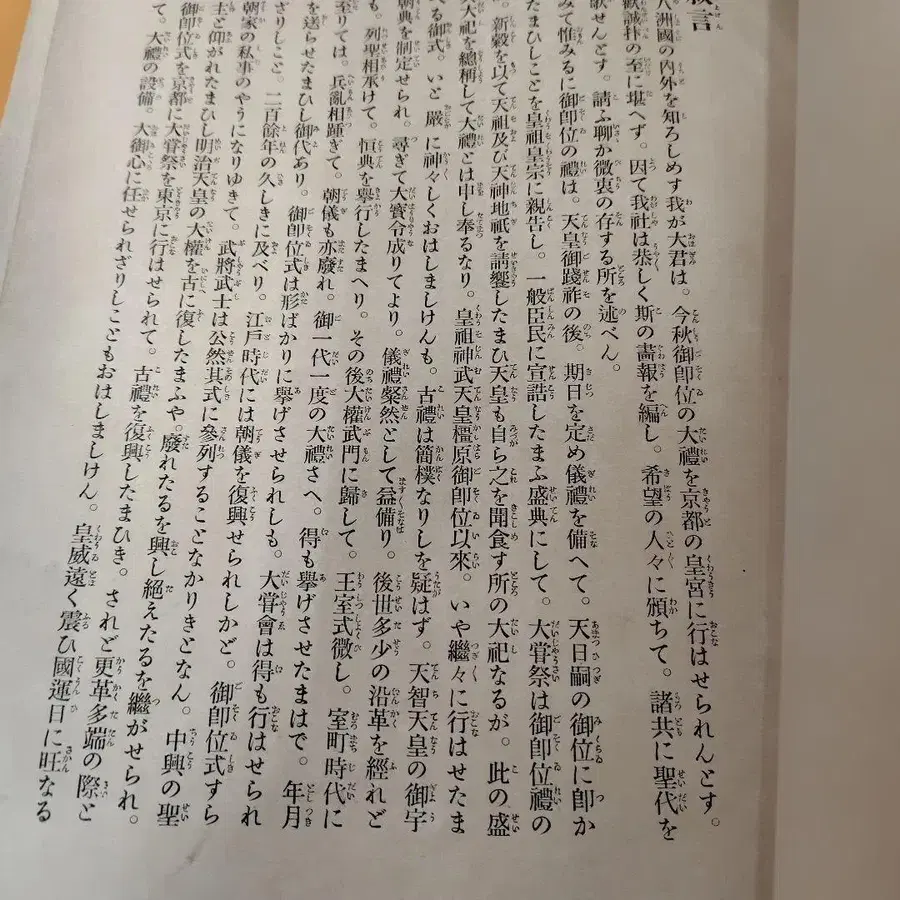 敍言
八洲國の内外を知ろしめす我が大君は。今秋御卽位の大禮を京都の皇宮に行はせられんとす。
歡誠抃の至に堪へず。因て我社は恭しく斯の畵報を編し。希望の人々に頒ちて。諸共に聖代を
獻せんとす。請ふ聊か微衷の存する所を述べん。
みて惟みるに御卽位の禮は。天皇御踐祚の後。期日を定め儀禮を備へて。天日嗣の御位に卽か
たまひしことを皇祖皇宗に親告し。一般臣民に宣誥したまふ盛典にして。大甞祭は御卽位禮の
。新穀を以て天祖及び天神地祇を請饗したまひ天皇も自ら之を聞食す所の大祀なるが。此の盛
大祀を總稱して大禮とは申し奉るなり。皇祖神武天皇橿原御卽位以來。いや繼々に行はせたま
る御式。いと嚴に神々しくおはしましけんも。古禮は簡樸なりしを疑はず。天智天皇の御宇
朝典を制定せられ。尋ぎて大寳令成りてより。儀禮粲然として益備り。後世多少の沿革を經れど
も。列聖相承けて。恒典を擧行したまへり。その後大權武門に歸して。王室式微し。室町時代に
至りては。兵亂相踵ぎて。朝儀も亦廢れ。御一代一度の大禮さへ。得も擧げさせたまはで。年月
を送らせたまひし御代あり。御卽位式は形ばかりに擧げさせられしも。大甞會は得も行はせられ
ざりしこと。二百餘年の久しきに及べり。江戸時代には朝儀を復興せられしかど。御卽位式すら
朝家の私事のやうになりゆきて。武將武士は公然其式に參列することなかりきとなん。中興の聖
主と仰がれたまひし明治天皇の大權を古に復したまふや。廢れたるを興し絕えたるを繼がせられ。
御卽位式を京都に大甞祭を東京に行はせられて。古禮を復興したまひき。されど更革多端の際と
て。大禮の設備。大御心に任せられざりしこともおはしましけん。皇威遠く震ひ國運日に旺なる